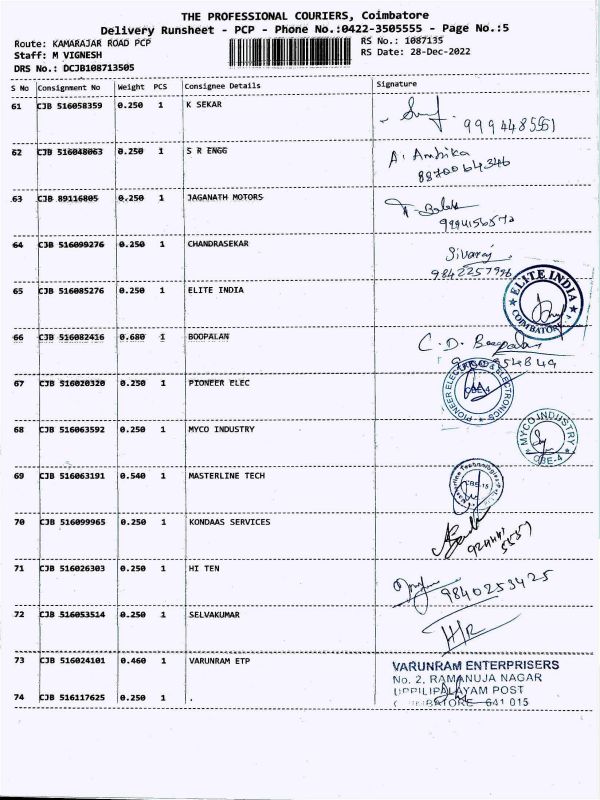 THE PROFESSIONAL COURIERS, Coimbatore
Delivery Runsheet - PCP - Phone No.:0422-3505555 - Page No.:5
Route: KAMARAJAR ROAD PCP
RS No.: 1087135
Staff: M VIGNESH
RS Date: 28-Dec-2022
DRS No.: DCJB108713505
S No Consignment No Weight PCS Consignee Details Signature
61 CJB 516058359 0.250 1 K SEKAR
9994485561
62 CJB 516048063 0.250 1 S R ENGG A. Ambika
8870064346
63 CJB 89116805 0.250 1 JAGANATH MOTORS
64 CJB 516099276 0.250 1 CHANDRASEKAR Sivaraj
9842257996
65 CJB 516085276 0.250 1 ELITE INDIA ELITE INDIA
COIMBATORE
66 CJB 516082416 0.680 1 BOOPALAN C.D. Boopalan
67 CJB 516020320 0.250 1 PIONEER ELEC PIONEER ELECTRICAL & ELECTRONICS
CBE-4
68 CJB 516063592 0.250 1 MYCO INDUSTRY MYCO INDUSTRY
CBE-4
69 CJB 516063191 0.540 1 MASTERLINE TECH Masterline Technologies
CBE-15
70 CJB 516099965 0.250 1 KONDAAS SERVICES
71 CJB 516026303 0.250 1 HI TEN 9840253425
72 CJB 516053514 0.250 1 SELVAKUMAR
73 CJB 516024101 0.460 1 VARUNRAM ETP VARUNRAM ENTERPRISERS
No. 2, RAMANUJA NAGAR
UPPILIPALAYAM POST
74 CJB 516117625 0.250 1 . COIMBATORE - 641 015